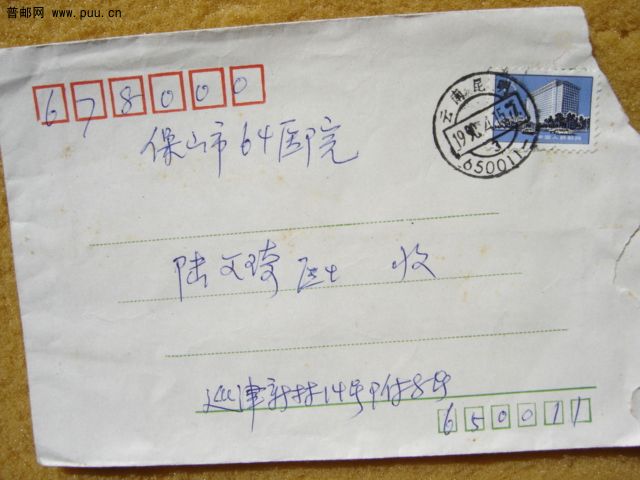 普邮网 www.puu.cn
678000
云南昆明
650011
保山市64医院
陆文琦医生 收
巡津新村14号附8号
650011